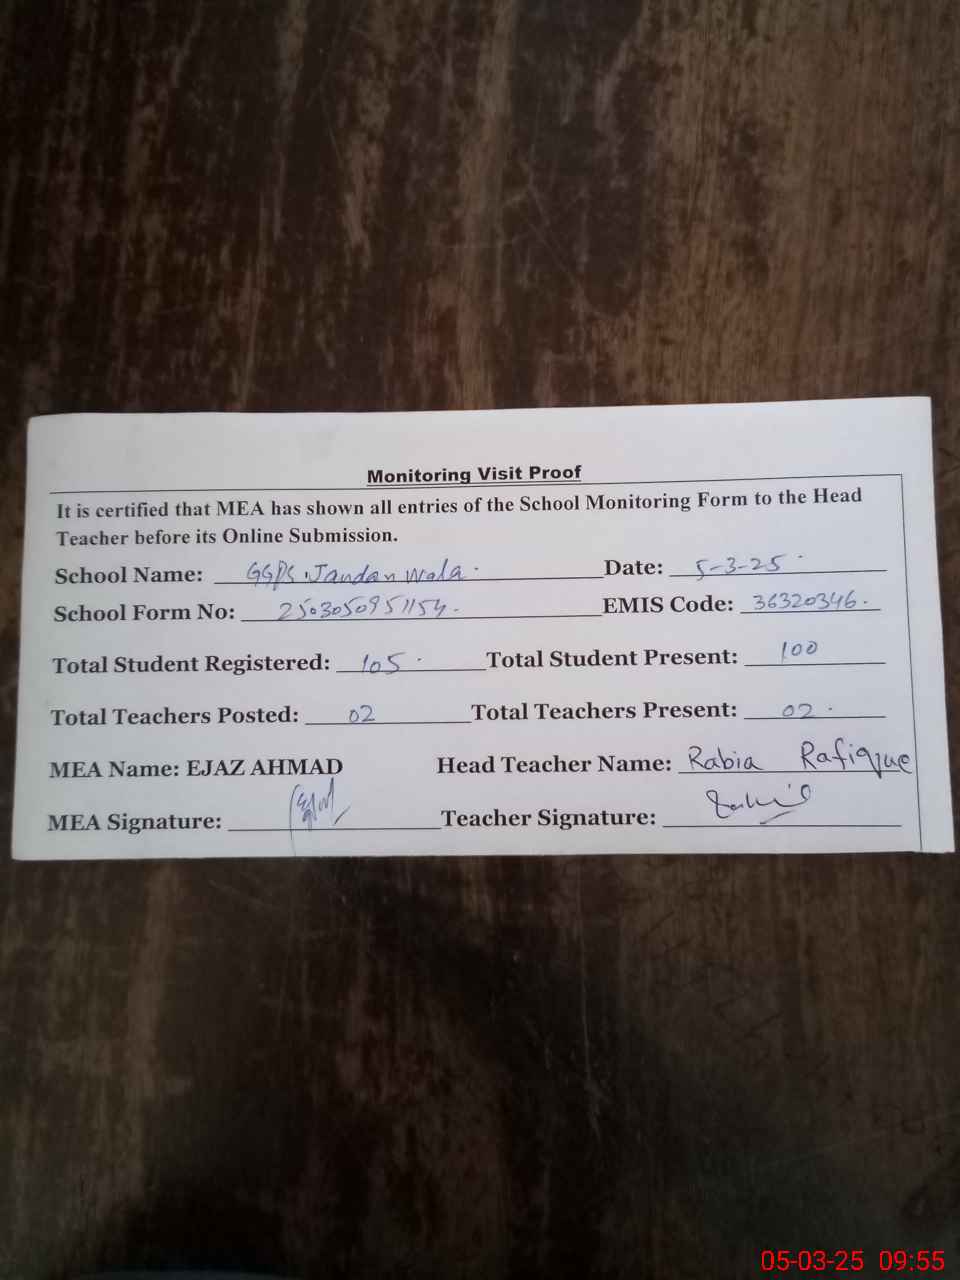 Monitoring Visit Proof
It is certified that MEA has shown all entries of the School Monitoring Form to the Head
Teacher before its Online Submission.
School Name: GGPS Jandan Wala. Date: 5-3-25
School Form No: 2503050951154. EMIS Code: 36320346.
Total Student Registered: 105 Total Student Present: 100
Total Teachers Posted: 02 Total Teachers Present: 02.
MEA Name: EJAZ AHMAD Head Teacher Name: Rabia Rafique
MEA Signature: Teacher Signature:
05-03-25 09:55